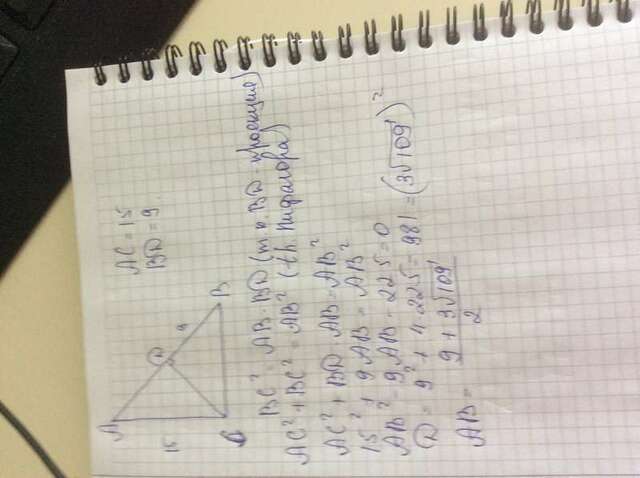 A
15
C
D
9
B
AC = 15
BD = 9.
BC² = AB · BD (т.к. BD - проекция)
AC² + BC² = AB² (th Пифагора)
AC² + BD · AB = AB²
15² + 9AB = AB²
AB² - 9AB - 225 = 0
D = 9² + 4 · 225 = 981 = (3√109)²
AB = 9 + 3√109 / 2